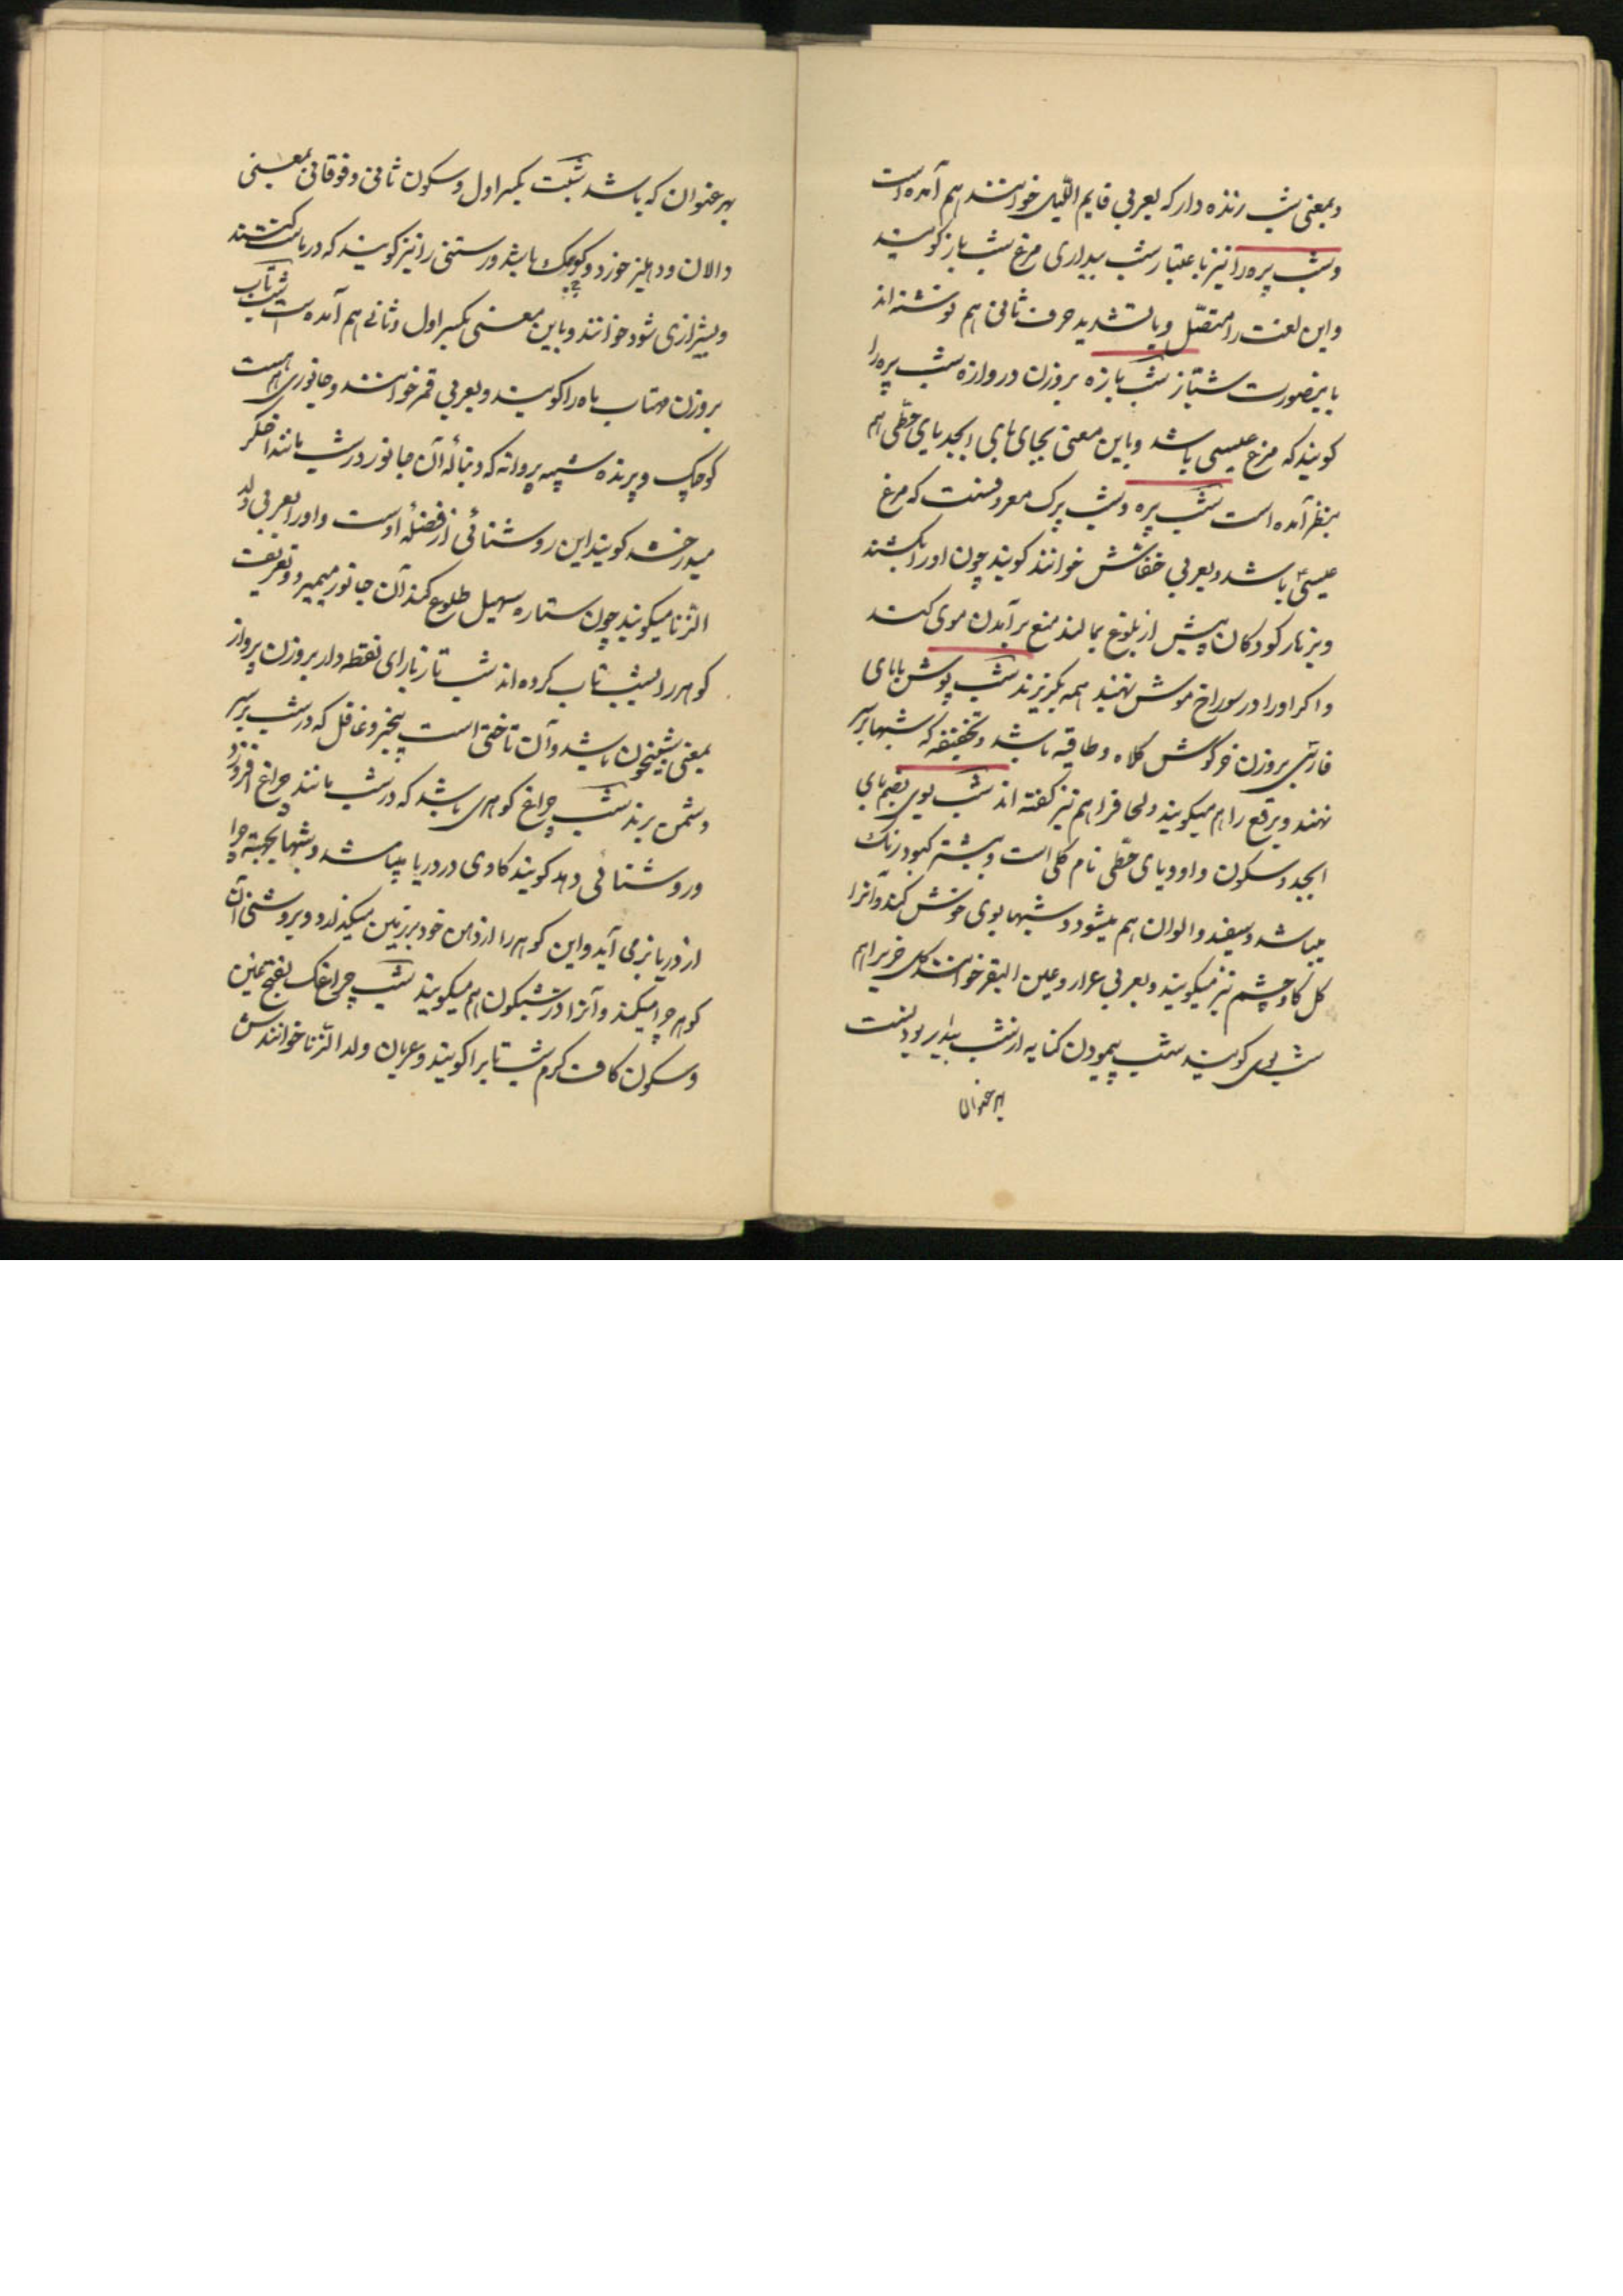 وبمعنی شب زنده دار که بعربی قایم اللیل خوانند هم آمده است
وشب پره را نیز باعتبار شب بیداری مرغ شب باز کویند
واین لغت را متصل وبا تشدید حرف ثانی هم نوشته اند
باینصورت شبّاز شب یازه بروزن دروازه شب پره را
کویند که مرغ عیسی باشد وباین معنی بجای یای ابجد یای حطی هم
بنظر آمده است شب پره وشب پرک معروفست که مرغ
عیسی باشد وبعربی خفاش خوانند کویند چون اورا بکشند
وبزنار کودکان پیش از بلوغ بمالند منع برآمدن موی کند
واکر اورا در سوراخ موش نهند همه بکریزند شب پوش بابای
فارسی بروزن خرکوش کلاه وطاقیه باشد وتخفیفه که شبها بر سر
نهند وبرقع را هم میکویند ولحاف را هم نیز کفته اند شب بوی بضم بای
ابجد وسکون واو ویای حطی نام کلی است وبیشتر کبود رنک
میباشد وسفید والوان هم میشود وشبها بوی خوش کند وآنرا
کل کاوچشم نیز میکویند وبعربی عرار وعین البقر خوانند کل خیری را هم
شب بوی کویند شب پیمودن کنایه از شب بیدار بودنست
بهر عنوان
بهر عنوان که باشد شبت بکسر اول وسکون ثانی وفوقانی بمعنی
دالان ودهلیز خورد وکوچک باشد ورستنی را نیز کویند که در ماست کنند
وبشیرازی شود خوانند وباین معنی بکسر اول وثانی هم آمده است شب تاب
بروزن مهتاب ماه را کویند وبعربی قمر خوانند وجانوری هم هست
کوچک وپرنده شبیه پروانه که دنبالهٔ آن جانور در شب مانند اخکر
میدرخشد کویند این روشنائی از فضلهٔ اوست واورا بعربی ولد
الزنا میکویند چون ستاره سهیل طلوع کند آن جانور میمیرد وتعریف
کوهر را بشب تاب کرده اند شب تاز بازای نقطه دار بروزن پرواز
بمعنی شبیخون باشد وآن تاختی است بیخبر وغافل که در شب بر سر
دشمن برند شب چراغ کوهری باشد که در شب مانند چراغ افروزد
وروشنائی دهد کویند کاوی در دریا میباشد وشبها بجهة چرا
از دریا بر می آید واین کوهر را از دهن خود بر زمین میکذارد وبروشنی آن
کوهر چرا میکند وآنرا در شبکون هم میکویند شب چراغک بفتح غین
وسکون کاف کرم شبتاب را کویند وعربان ولد الزنا خوانندش